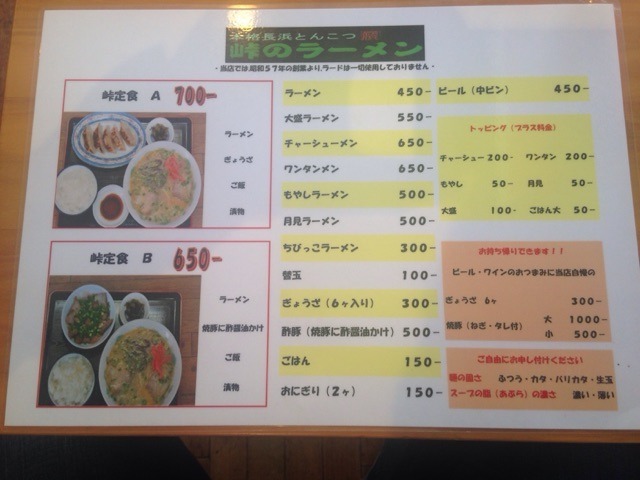 本格長浜とんこつ
峠のラーメン
・当店では、昭和57年の創業より、ラードは一切使用しておりません・
峠定食 A 700-
ラーメン
ぎょうざ
ご飯
漬物
峠定食 B 650-
ラーメン
焼豚に酢醤油かけ
ご飯
漬物
ラーメン 450-
大盛ラーメン 550-
チャーシューメン 650-
ワンタンメン 650-
もやしラーメン 500-
月見ラーメン 500-
ちびっこラーメン 300-
替玉 100-
ぎょうざ(6ヶ入り) 300-
酢豚(焼豚に酢醤油かけ) 500-
ごはん 150-
おにぎり(2ヶ) 150-
ビール(中ビン) 450-
トッピング(プラス料金)
チャーシュー 200- ワンタン 200-
もやし 50- 月見 50-
大盛 100- ごはん大 50-
お持ち帰りできます!!
ビール・ワインのおつまみに当店自慢の
ぎょうざ 6ヶ 300-
焼豚(ねぎ・タレ付) 大 1000-
小 500-
ご自由にお申し付けください
麺の固さ ふつう・カタ・バリカタ・生玉
スープの脂(あぶら)の濃さ 濃い・薄い